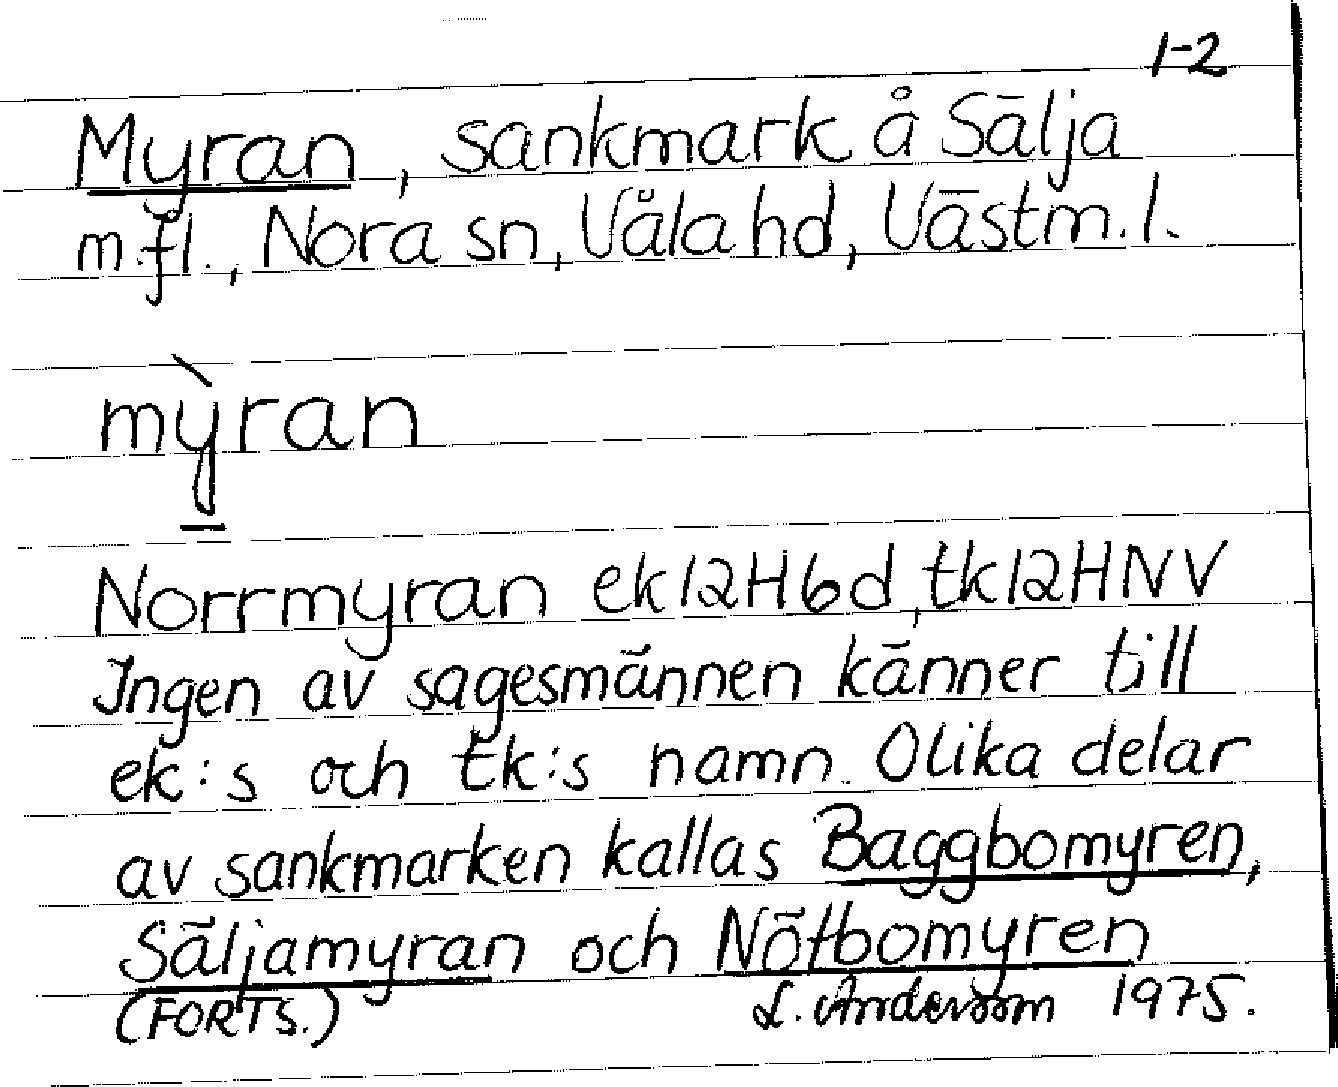 1-2
Myran, sankmark å Sälja
m.fl., Nora sn, Våla hd, Västm. l.
mỳran
Norrmyran ek12H6d, tk12HNV
Ingen av sagesmännen känner till
ek:s och tk:s namn. Olika delar
av sankmarken kallas Baggbomyren,
Säljamyran och Nötbomyren
(FORTS.) L. Andersson 1975.